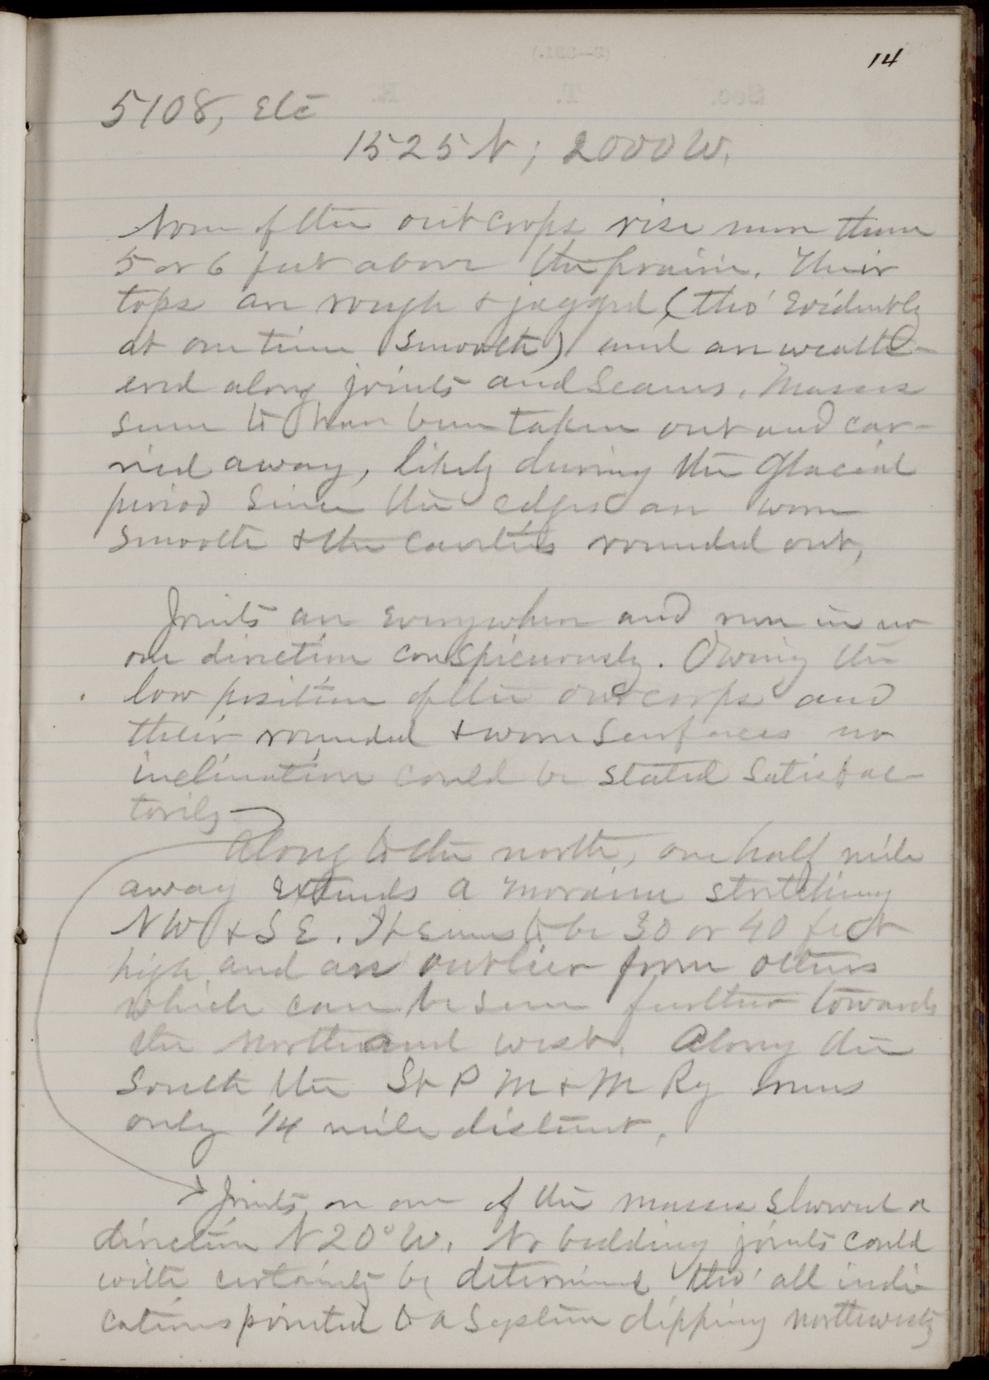 14
5108, Etc
1525 N; 2000 W.
None of the outcrops rise more than
5 or 6 feet above the prairie. Their
tops are rough & jagged (tho' Evidently
at one time smooth) and are weath-
ered along joints and Seams. Masses
seem to have been taken out and car-
ried away, likely during the Glacial
period since the edges are worn
smooth & the cavities rounded out,
Joints are Everywhere and run in no
one direction conspicuously. Owing the
low position of the outcrops and
their rounded & worn Surfaces no
inclination could be stated satisfac-
torily
Along to the north, one half mile
away extends a moraine stretching
NW & SE. It seems to be 30 or 40 feet
high and an outlier from others
which can be seen further towards
the north and west. Along the
South the St P M & M Ry runs
only 1/4 mile distant.
Joints on one of the masses showed a
direction N 20° W. No bedding joints could
with certainty be determined tho' all indi-
cations pointed to a System dipping northwesterly